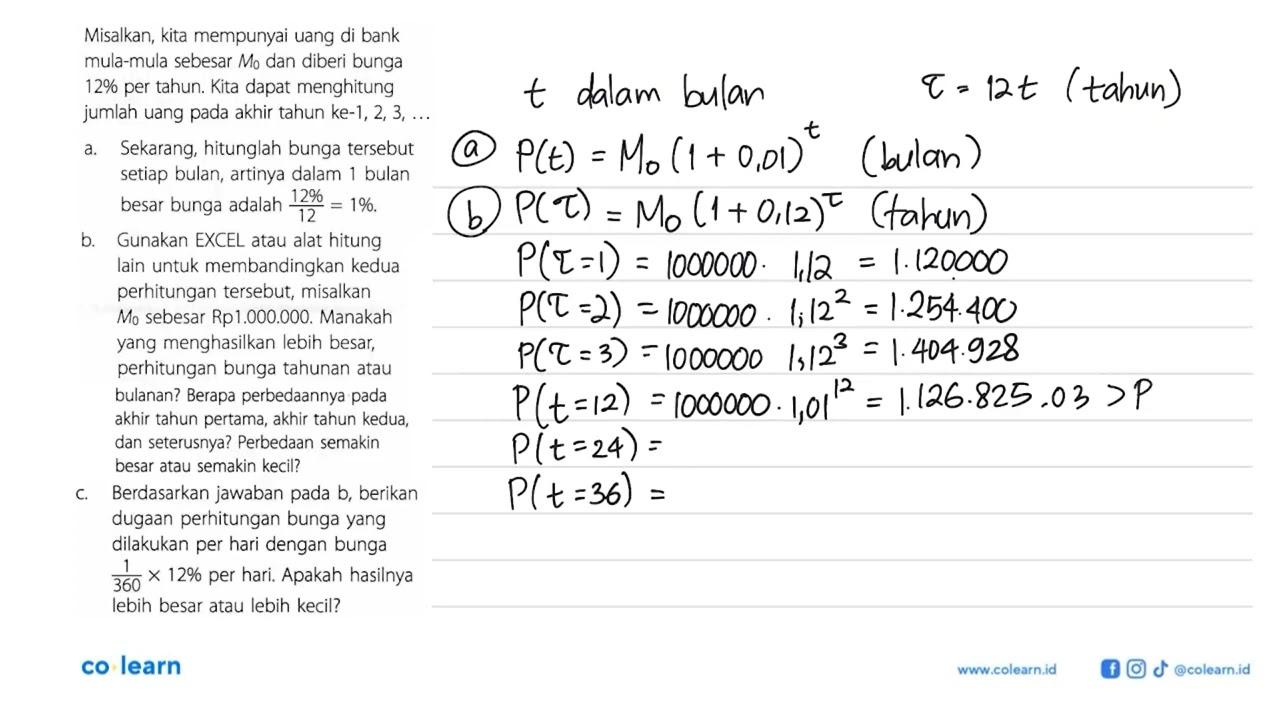 Misalkan, kita mempunyai uang di bank
mula-mula sebesar M₀ dan diberi bunga
12% per tahun. Kita dapat menghitung
jumlah uang pada akhir tahun ke-1, 2, 3, ...
a. Sekarang, hitunglah bunga tersebut
setiap bulan, artinya dalam 1 bulan
besar bunga adalah 12%/12 = 1%.
b. Gunakan EXCEL atau alat hitung
lain untuk membandingkan kedua
perhitungan tersebut, misalkan
M₀ sebesar Rp1.000.000. Manakah
yang menghasilkan lebih besar,
perhitungan bunga tahunan atau
bulanan? Berapa perbedaannya pada
akhir tahun pertama, akhir tahun kedua,
dan seterusnya? Perbedaan semakin
besar atau semakin kecil?
c. Berdasarkan jawaban pada b, berikan
dugaan perhitungan bunga yang
dilakukan per hari dengan bunga
1/360 × 12% per hari. Apakah hasilnya
lebih besar atau lebih kecil?
t dalam bulan τ = 12t (tahun)
ⓐ P(t) = M₀ (1 + 0,01)^t (bulan)
ⓑ P(τ) = M₀ (1 + 0,12)^τ (tahun)
P(τ=1) = 1000000. 1,12 = 1.120000
P(τ=2) = 1000000. 1,12² = 1.254.400
P(τ=3) = 1000000 1,12³ = 1.404.928
P(t=12) = 1000000. 1,01¹² = 1.126.825.03 > P
P(t=24) =
P(t=36) =
co learn
www.colearn.id
@colearn.id